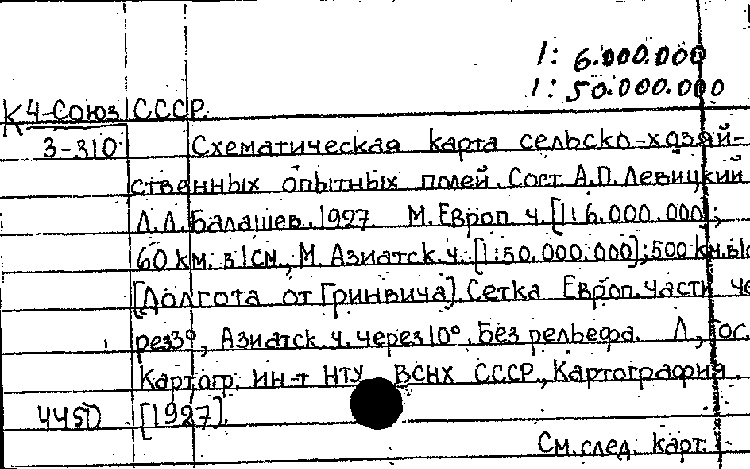 1: 6.000.000
1: 50.000.000
К4-Союз СССР.
3-310 Схематическая карта сельско-хозяй-
ственных опытных полей. Сост. А.П. Левицкий
Л.Л. Балашев. 1927. М. Европ. ч. [1:6.000.000];
60 км. в 1 см., М. Азиатск. ч. [1:50.000.000]; 500 км. в 1с
[Долгота от Гринвича]. Сетка Европ. части че
рез 3°, Азиатск. ч. через 10°. Без рельефа. Л., Гос.
Картогр. Ин-т НТУ ВСНХ СССР., Картография.
[1927].
См. след. карт.